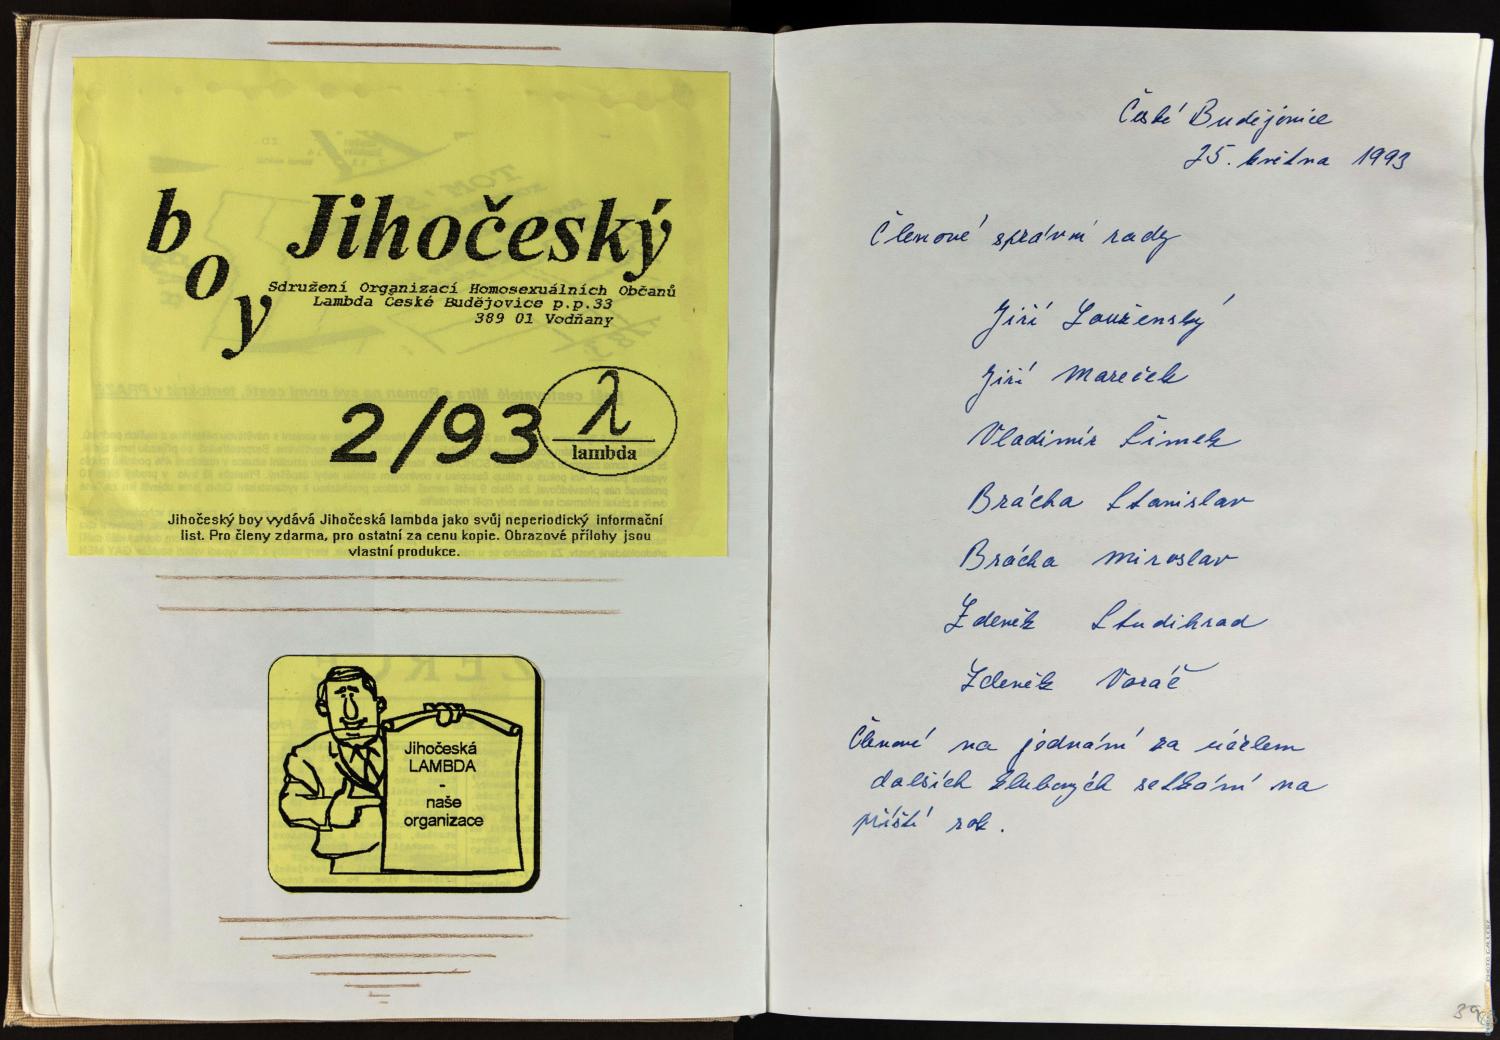 boy Jihočeský
Sdružení Organizací Homosexuálních Občanů
Lambda České Budějovice p.p.33
389 01 Vodňany
2/93
λ
lambda
Jihočeský boy vydává Jihočeská lambda jako svůj neperiodický informační
list. Pro členy zdarma, pro ostatní za cenu kopie. Obrazové přílohy jsou
vlastní produkce.
Jihočeská
LAMBDA
-
naše
organizace
České Budějovice
25. května 1993
Členové správní rady
Jiří Louženský
Jiří Mareček
Vladimír Šimek
Brácha Stanislav
Brácha Miroslav
Zdeněk Studihrad
Zdeněk Voráč
Členové na jednání za účelem
dalších klubových setkání na
příští rok.
39